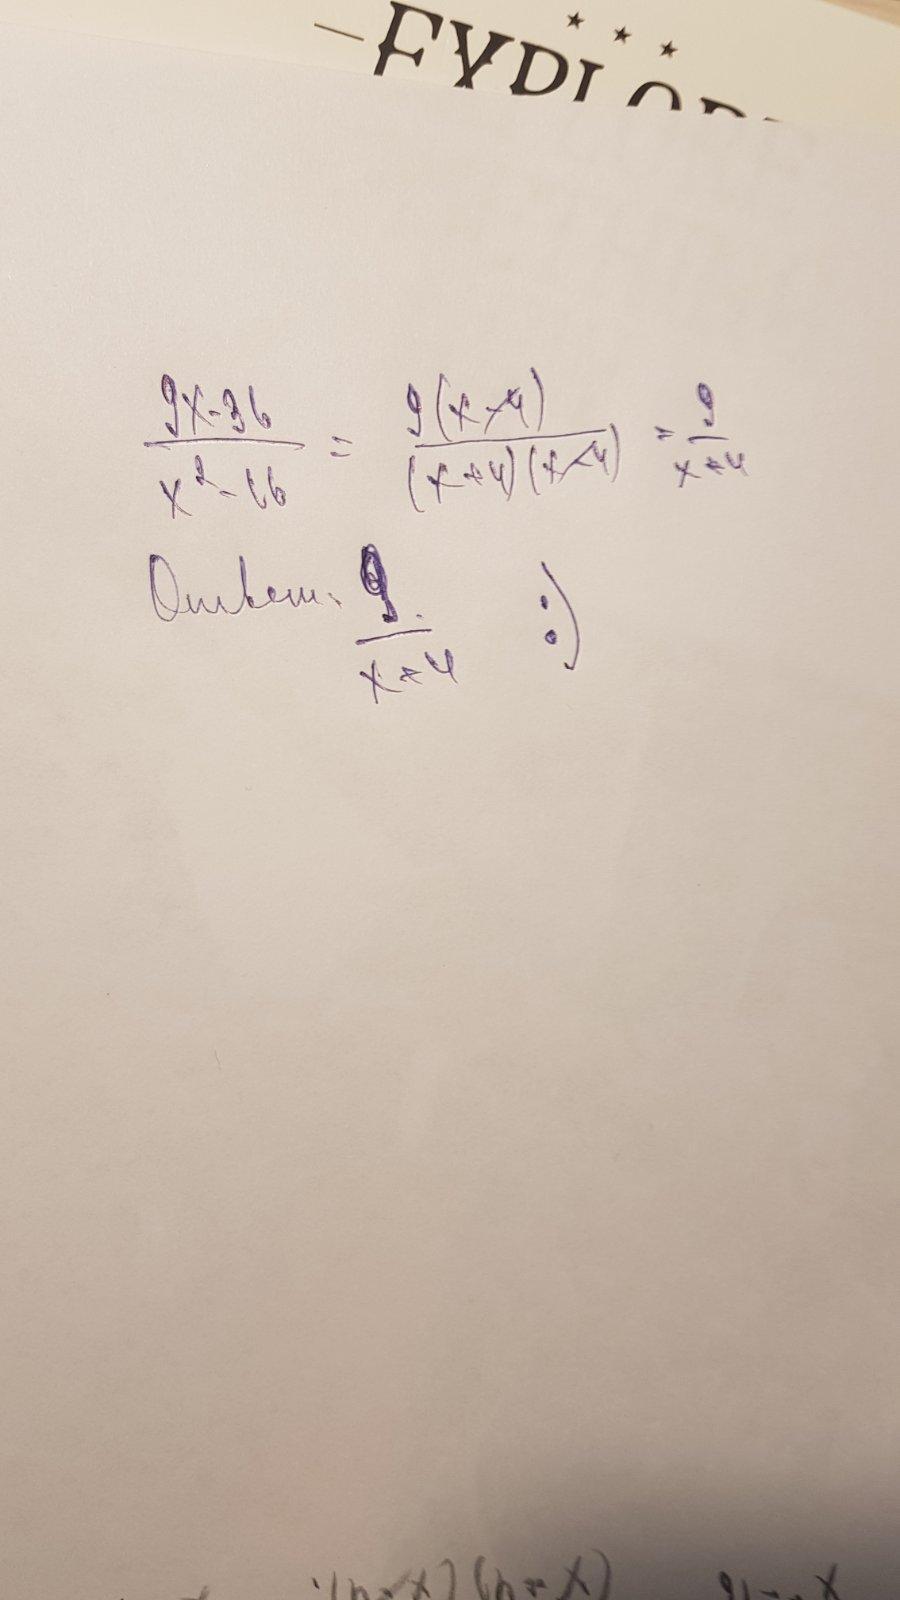 (9x-36)/(x²-16) = 9(x-4)/((x+4)(x-4)) = 9/(x+4)
Ответ: 9/(x+4) :)